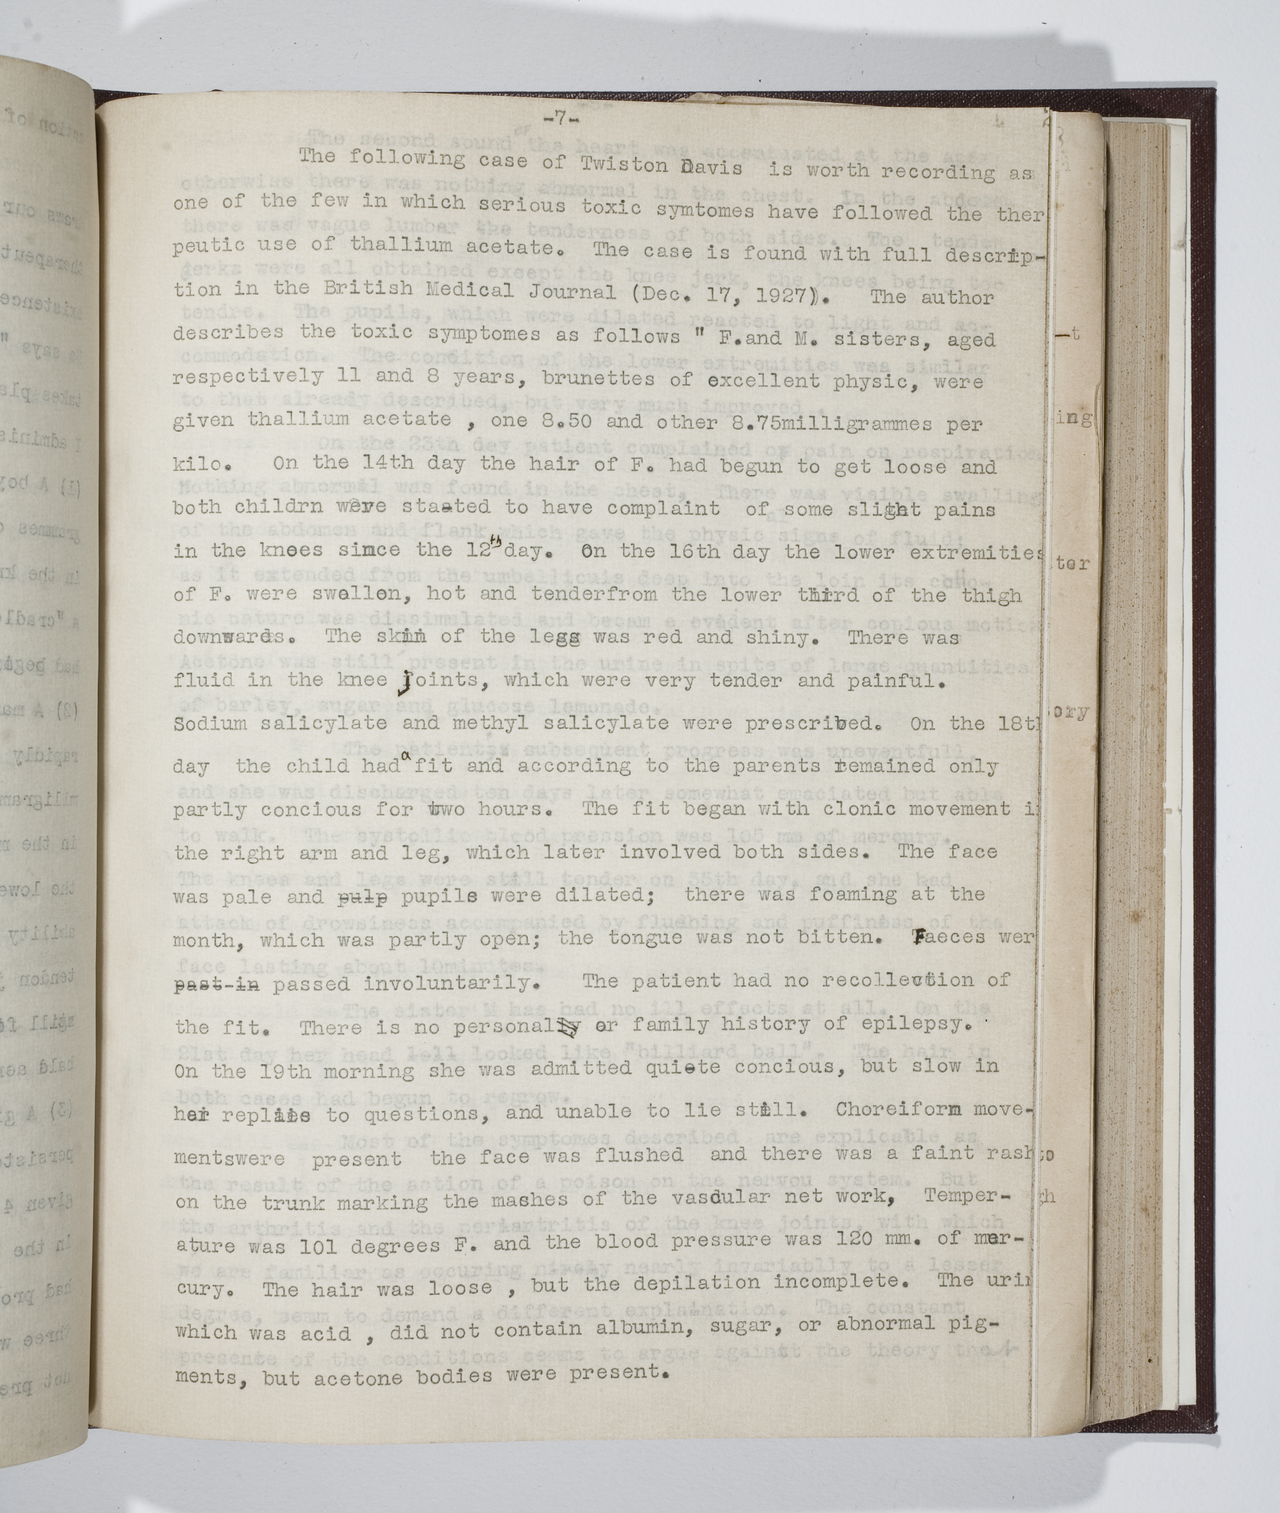 -7-
The following case of Twiston Davis is worth recording as
one of the few in which serious toxic symtomes have followed the ther
peutic use of thallium acetate. The case is found with full descrip-
tion in the British Medical Journal (Dec. 17, 1927). The author
describes the toxic symptomes as follows " F.and M. sisters, aged
respectively 11 and 8 years, brunettes of excellent physic, were
given thallium acetate , one 8.50 and other 8.75milligrammes per
kilo. On the 14th day the hair of F. had begun to get loose and
both childrn were staated to have complaint of some slight pains
in the knees since the 12th day. On the 16th day the lower extremities
of F. were swollen, hot and tenderfrom the lower third of the thigh
downwards. The skin of the legg was red and shiny. There was
fluid in the knee joints, which were very tender and painful.
Sodium salicylate and methyl salicylate were prescribed. On the 18th
day the child had a fit and according to the parents remained only
partly concious for two hours. The fit began with clonic movement i
the right arm and leg, which later involved both sides. The face
was pale and pulp pupils were dilated; there was foaming at the
month, which was partly open; the tongue was not bitten. Faeces wer
past in passed involuntarily. The patient had no recollection of
the fit. There is no personally or family history of epilepsy.
On the 19th morning she was admitted quiete concious, but slow in
her replies to questions, and unable to lie still. Choreiform move-
mentswere present the face was flushed and there was a faint rash
on the trunk marking the mashes of the vascular net work, Temper-
ature was 101 degrees F. and the blood pressure was 120 mm. of mer-
cury. The hair was loose , but the depilation incomplete. The urin
which was acid , did not contain albumin, sugar, or abnormal pig-
ments, but acetone bodies were present.